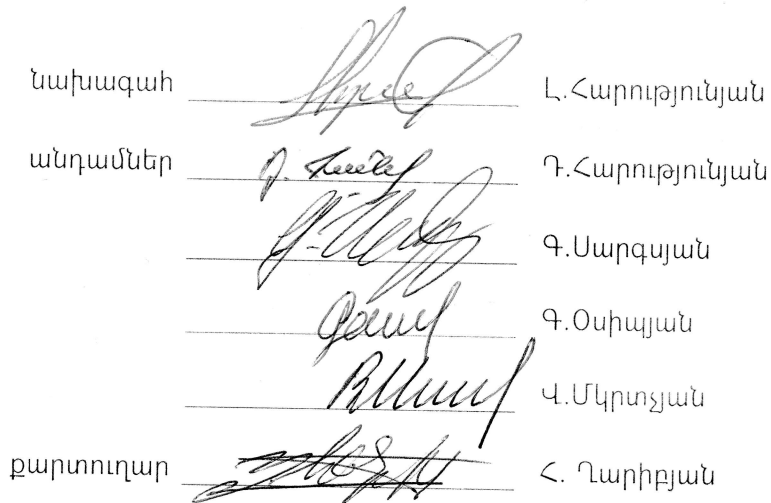 նախագահ Լ.Հարությունյան
անդամներ Դ.Հարությունյան
Գ.Սարգսյան
Գ.Օսիպյան
Վ.Մկրտչյան
քարտուղար Հ. Ղարիբյան